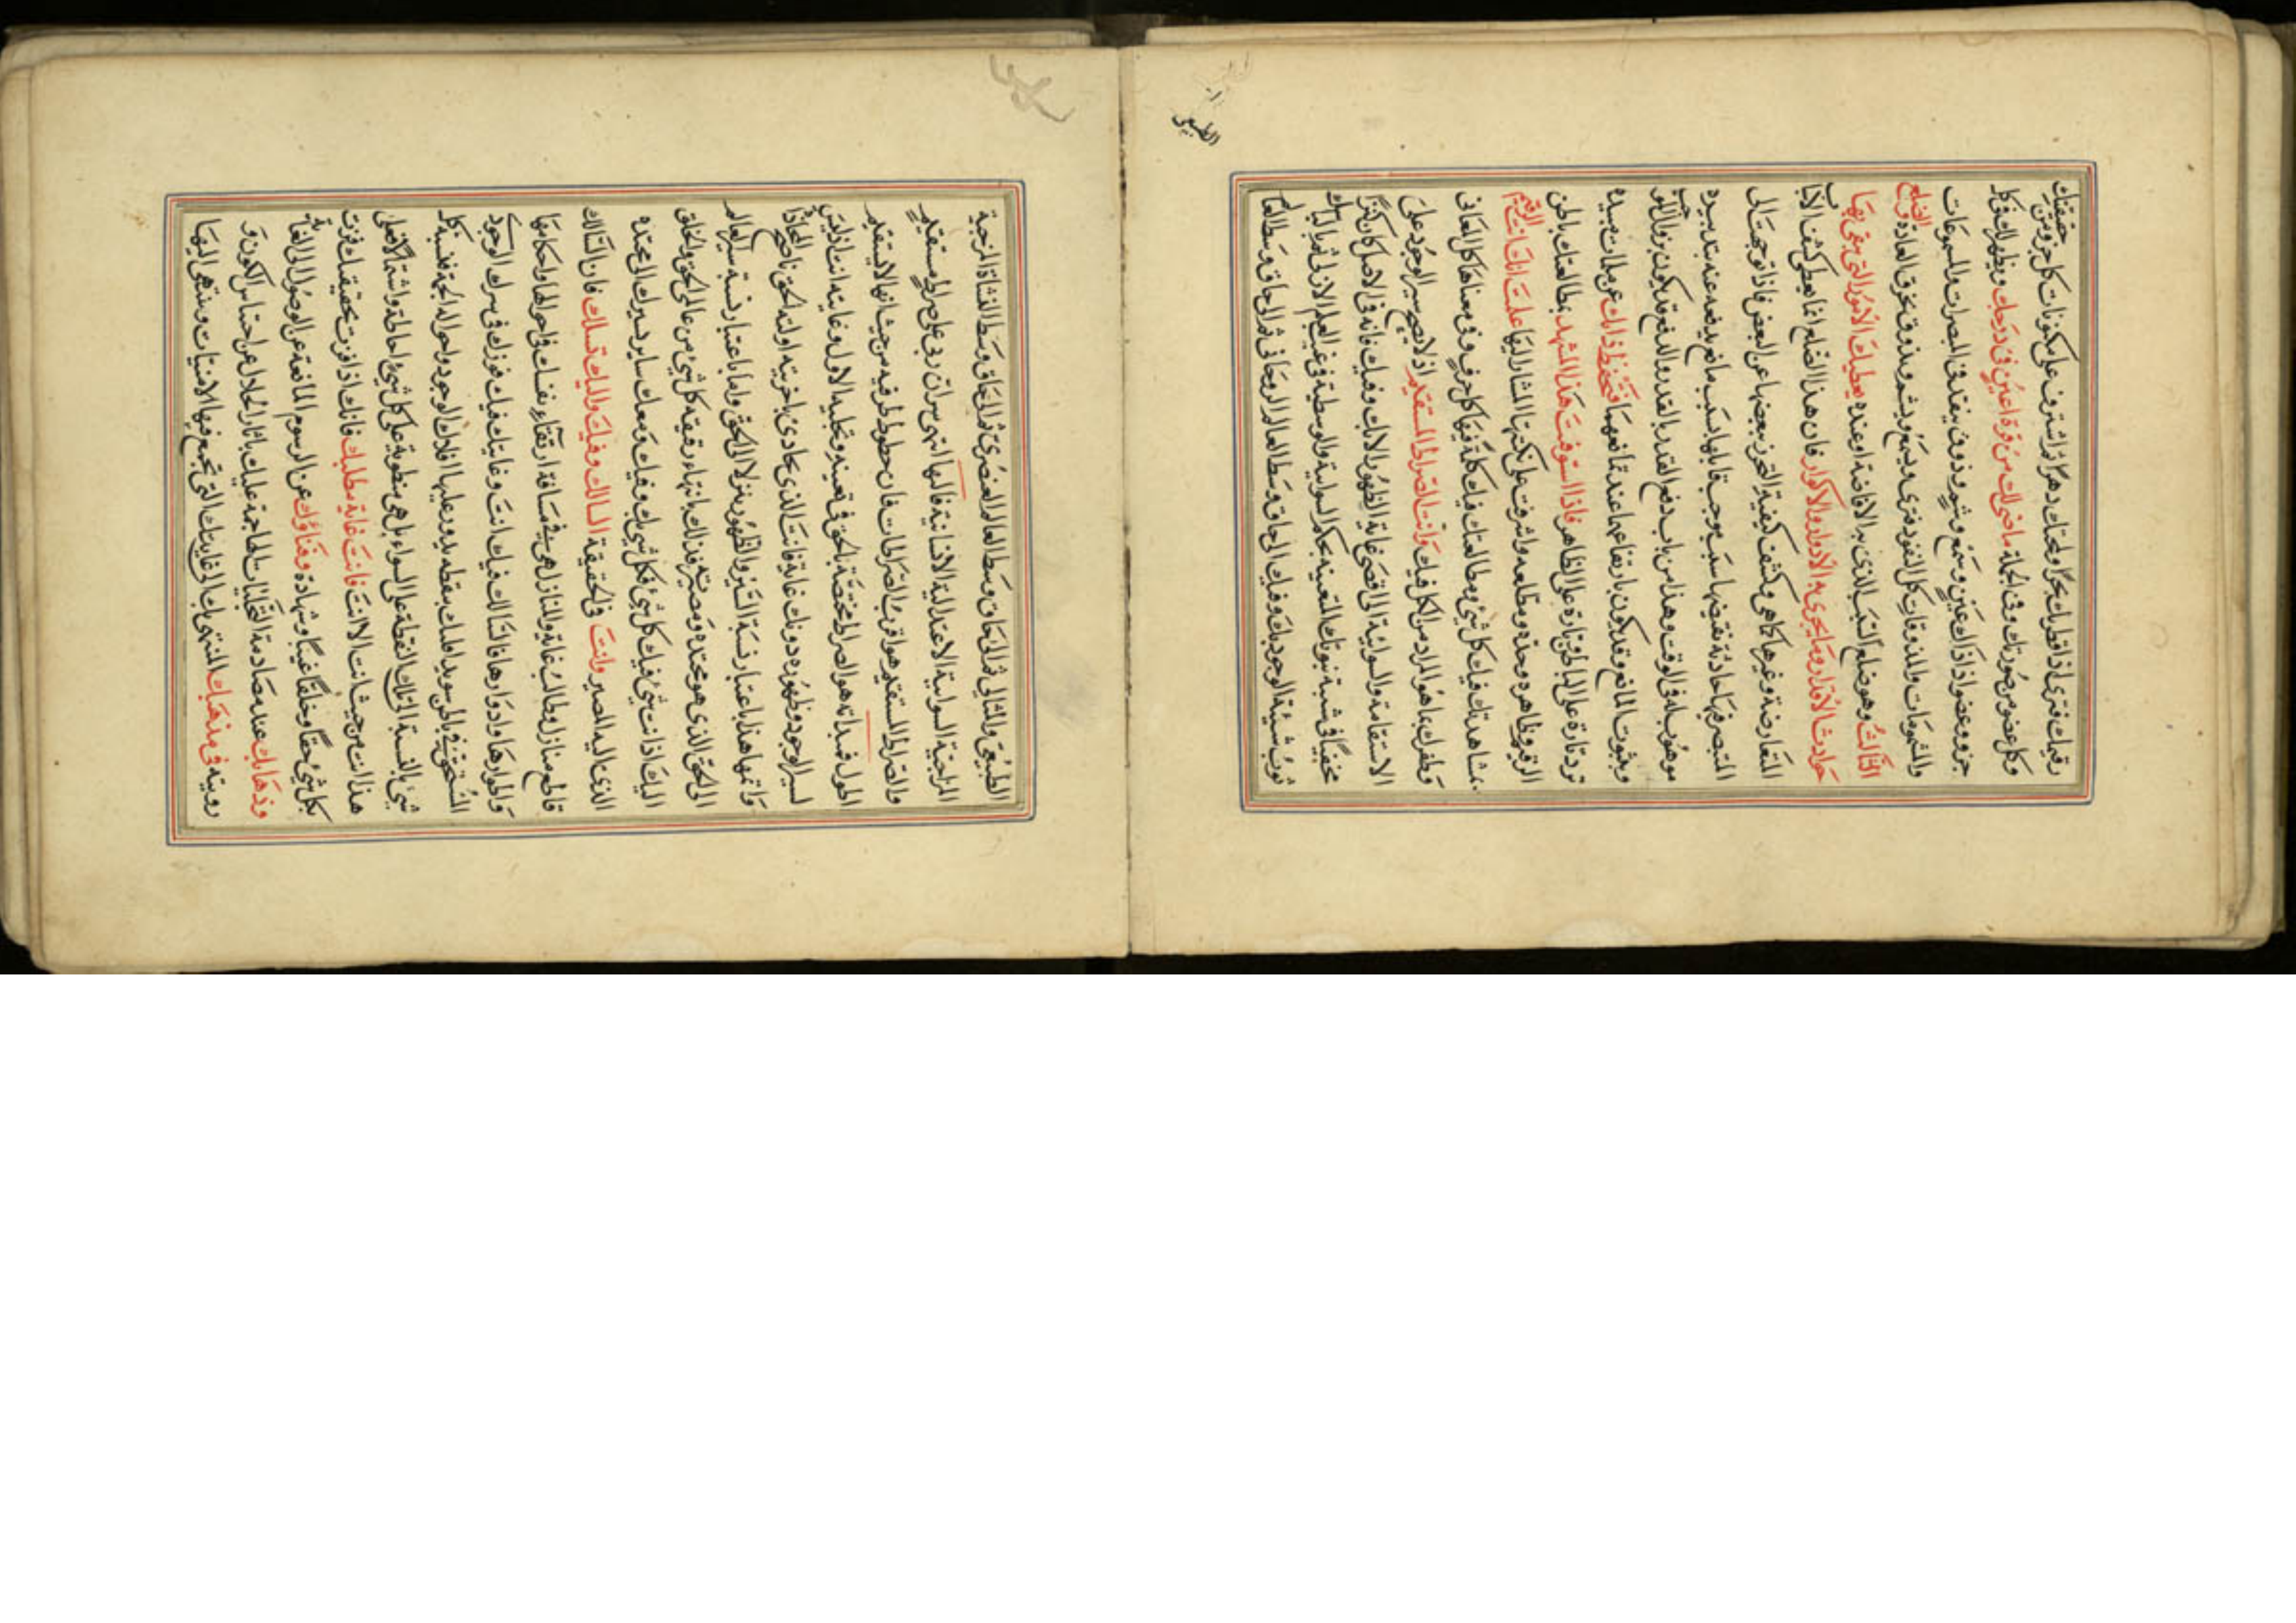 رقيمك فترى اذا قطر بك بحرا ولمحتك دهرا ثم اشرف على مكونات كل جزء من حقيقتك
وكل عضو من صورتك وفى الجملة ما خفى لك من قرة اعين فى درجك ويظهر لك فى كل
جزو وعضو اذ ذاك عين وسمع وشم وذوق ينفد فى المبصرات والمسموعات
والمشمومات والمذوقات كل النفوذ فترى ويسمع ويشم ويذوق بخرق العادة و الضلع
الثالث وهو ضلع السبب الذى به الافاضة او عنده يعطيك الامور التى بقى بها
حوادث الاقدار وما يجرى به الادوار والاكوار فان هذا الضلع انما يعطى كشف الاسباب
المتعارضة وغيرها كما هى وكشف كيفية التحرز ببعضها عن البعض فاذا توجهت الى
المتصرف بها حادثة تقتضيها سبب يوجب قابلها بسبب مانع يدفعه عنه بتدبيره
موهوب له فى الوقت وهذا من باب دفع القدر بالقدر والدفع قد يكون بزوال الموجب
وبثبوت المانع وقد يكون بارتفاعهما عند تمانعهما فتحفظ ذاتك عن ملمات مبيدة
تردتارة على الباطن وتارة على الظاهر فاذا استوفيت هذا المشهد بمطالعتك باطن
الرقيم وظاهره وحده ومطلعه واشرفت على نكتها المشار اليها علمت انك انت الرقيم
بمشاهدتك فيك كل شىء ومطالعتك فيك كلمة فيها كل حرف وفى معناها كل المعانى
وظفرك بما هو المراد من الكل فيك وانت الصراط المستقيم اذ لا يصح سير الوجود على
الاستقامة والسوائية الى اقصى غاية الظهور الا بك وفيك فانه فى الاصل كان كنزا
مخفيا فى شبيه ثبوتك المتعينة بحكم السوائية والوسطية فى غيب العلم الازلى ثم البسك
ثوب شيئية الوجود بك وفيك الى حاق وسط العالم الروحانى ثم الى حاق وسط العالم
الطبيعى
الطبيعى والمثالى ثم الى حاق وسط العالم العنصرى ثم الى حاق وسط النشأة المزجية
المزاجية السوائية الاعتدالية الانسانية فالها انتهى سر ان ربى على صراط مستقيم
والصراط المستقيم هو اقرب الصراطات فان خطوط طرفيه من حيث انها لا يستقيم
اطول فبدأته هو الصراط مختصة بالحق فى تعينه وتجليه الاول وغايته انت اذ ليس
لسير الوجود وظهوره دونك غاية فانت الذى يحاذى باخريته اولية الحق ناصح المحاذاة
واتمها هذا باعتبار نسبة السير والظهور بتنزلا الى الحق واما باعتبار نسبة سير العالم
الى الحق الذى هو محتده ومصيره فذلك بانتهاء رقيقة كل شىء من عالمى الحق والخلق
اليك اذ انت شىء فيك كل شىء فكل شىء بك وفيك ومعك ساير بسيرك الى محتده
الذى اليه المصير وانت فى الحقيقة السالك وفيك واليك تسلك فان السالك
قاطع منازل وطالب غاية والمنازل هى فى مسافة ارتقاء نفسك فى احوالها واحكامها
واطوارها وادوارها فالسالك فيك انت وغايتك فيك فوزك فى سرك الوجودى
المستجن فى باطن سويداء قلبك بنقطة يدور عليها افلاك الوجود واحواله الجمة فنسبة كل
شىء بالنسبة الى تلك النقطة على السواء بل هى منطوية على كل شىء واحاطة واشتمالا فعلى
هذا انت من حيث انت الا انت فانت غاية مطلبك فانك اذا فزت بحقيقتك فزت
بكل شىء حقا وخلقا غيبا وشهادة وفناؤك عن الرسوم المانعة عن الوصول الى الغاية
وذهابك عند مصادمة التجليات الهاجمة عليك باثار الجلال عن احساس الكون و
رويته فى مذهبك المنتهى بك الى غايتك التى تجمع فيها الامنيات وينتهى اليها